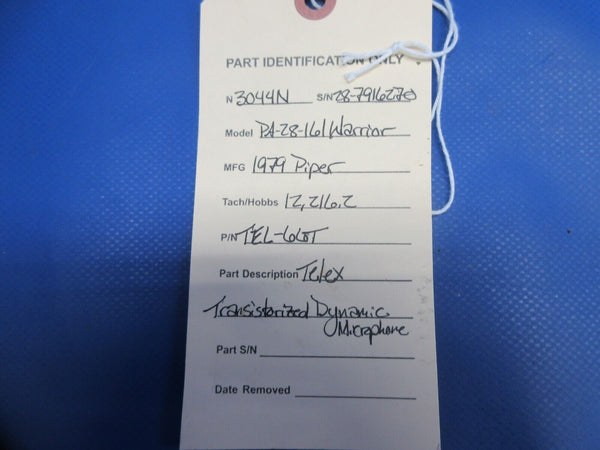 PART IDENTIFICATION ONLY
N 3044N S/N 28-7916270
Model PA-28-161 Warrior
MFG 1979 Piper
Tach/Hobbs 12,216.2
P/N TEL-66T
Part Description Telex
Transistorized Dynamic
Microphone
Part S/N
Date Removed